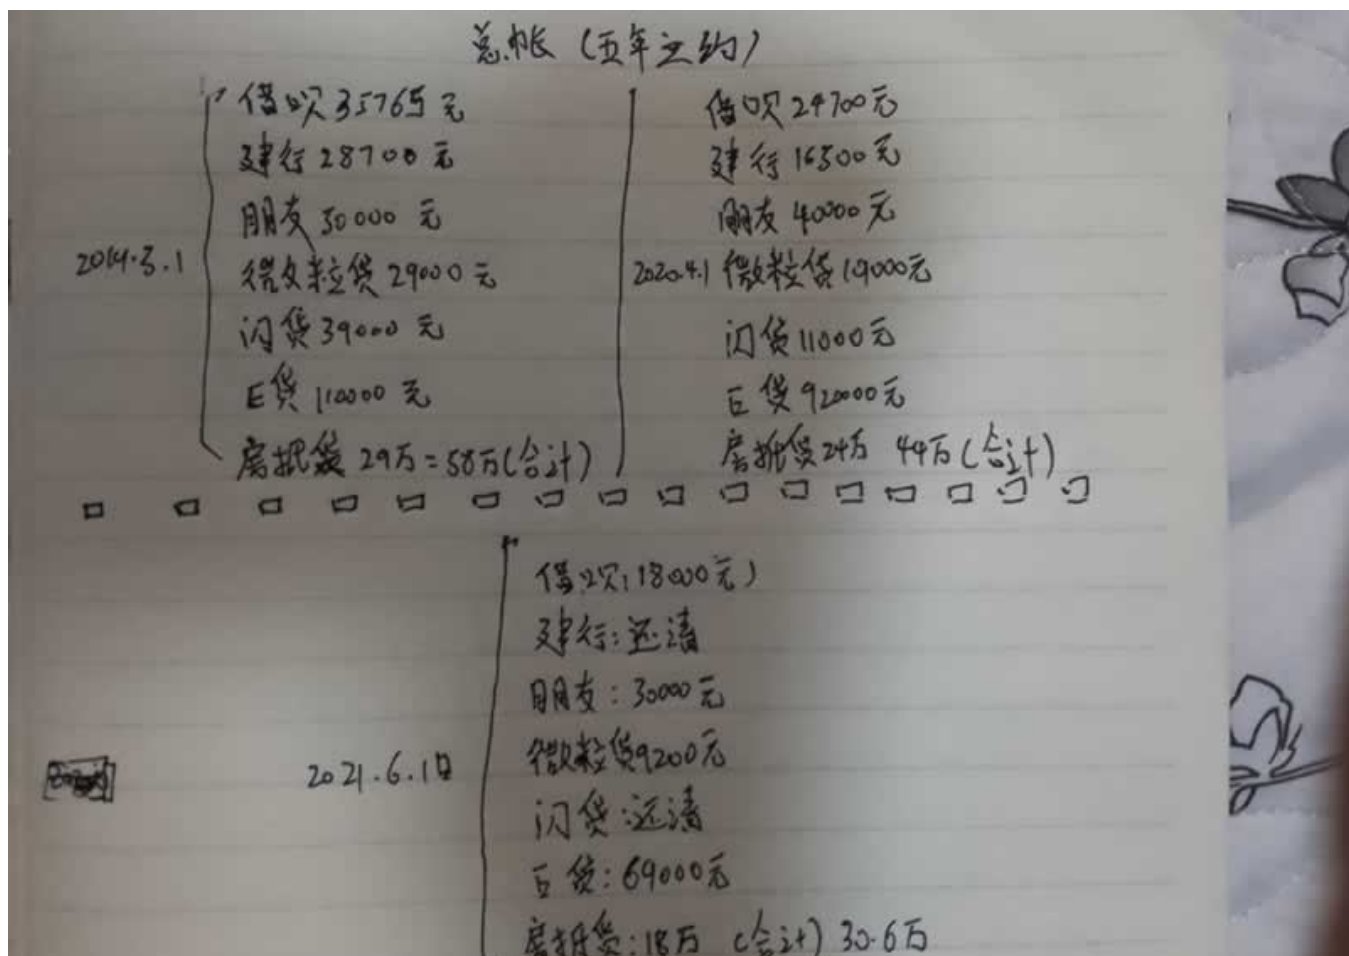 总帐（五年之约）
借呗35765元
建行28700元
朋友50000元
微粒贷29000元
2019.3.1
闪贷39000元
E贷110000元
房抵贷29万=58万(合计)
借呗24700元
建行16500元
朋友40000元
2020.4.1 微粒贷19000元
闪贷11000元
E贷92000元
房抵贷24万 44万(合计)
借呗:18000元)
建行:还清
朋友:30000元
微粒贷9200元
2021.6.1日
闪贷:还清
E贷:69000元
房抵贷:18万 (合计) 30.6万